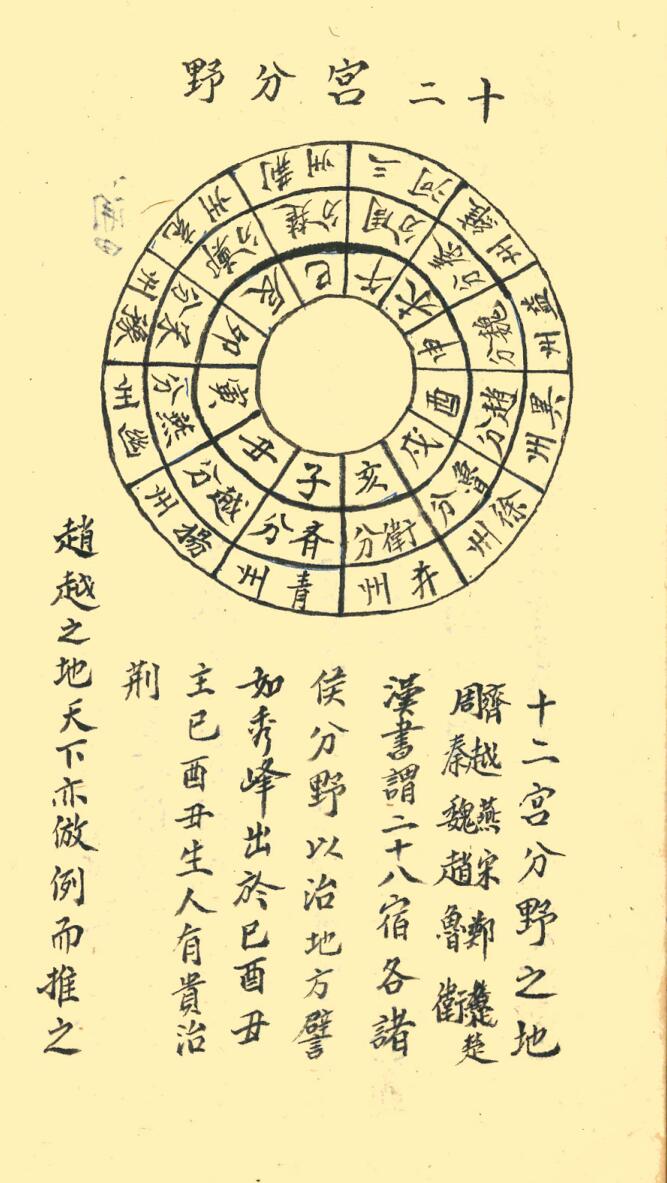 十二宮分野
子 斉分 青州
丑 越分 揚州
寅 燕分 幽州
卯 宋分 豫州
辰 鄭分 兗州
巳 楚分 荆州
午 周分 三河
未 秦分 雍州
申 魏分 益州
酉 趙分 冀州
戌 魯分 徐州
亥 衛分 并州
十二宮分野之地
齊越燕宋鄭楚
周秦魏趙魯衛
漢書謂二十八宿各諸
侯分野以治地方譬
如秀峰出於巳酉丑
主巳酉丑生人有貴治
荆
趙越之地天下亦倣例而推之